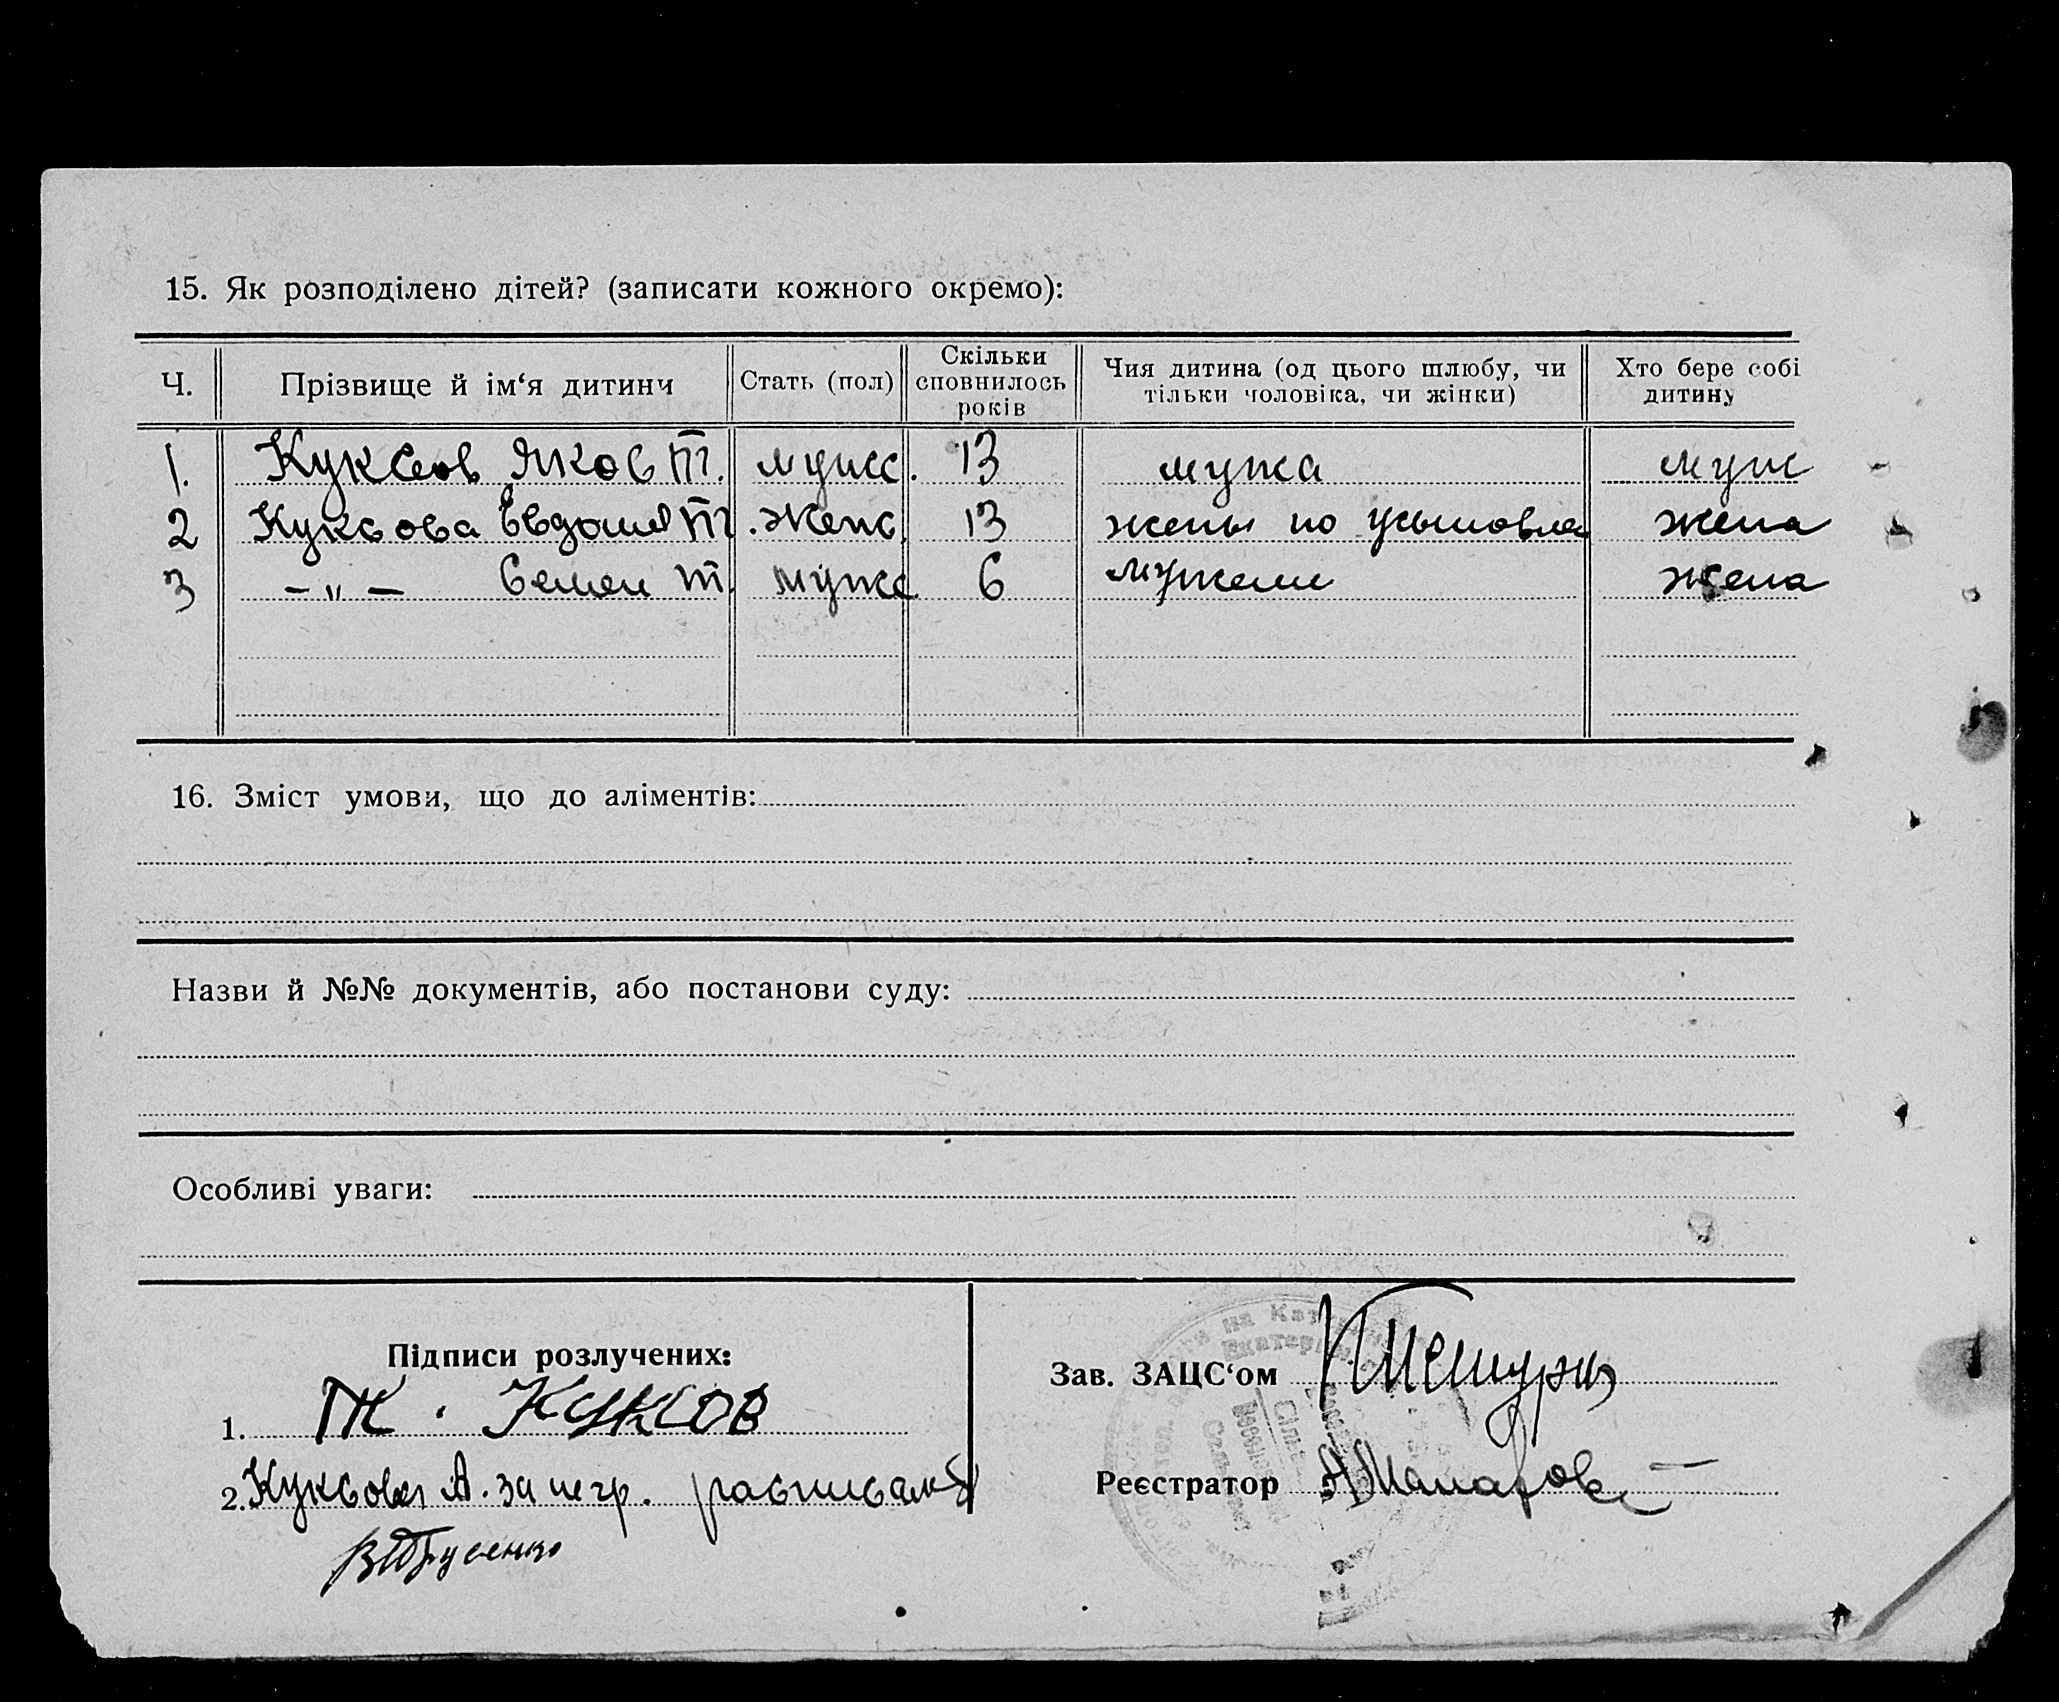 15. Як розподілено дітей? (записати кожного окремо):
Ч. Прізвище й ім‘я дитини Стать (пол) Скільки сповнилось років Чия дитина (од цього шлюбу, чи тільки чоловіка, чи жінки) Хто бере собі дитину
1. Куксов Яков Т. мужс. 13 мужа муж
2 Куксова Евдокия Т. женс. 13 жены по усыновле жена
3 – „ – Семен Т. мужс 6 мужем жена
16. Зміст умови, що до аліментів:
Назви й №№ документів, або постанови суду:
Особливі уваги:
Підписи розлучених:
Зав. ЗАЦС‘ом
1. ТК. Куксов
Реєстратор
2. Куксова А. за негр. расписался